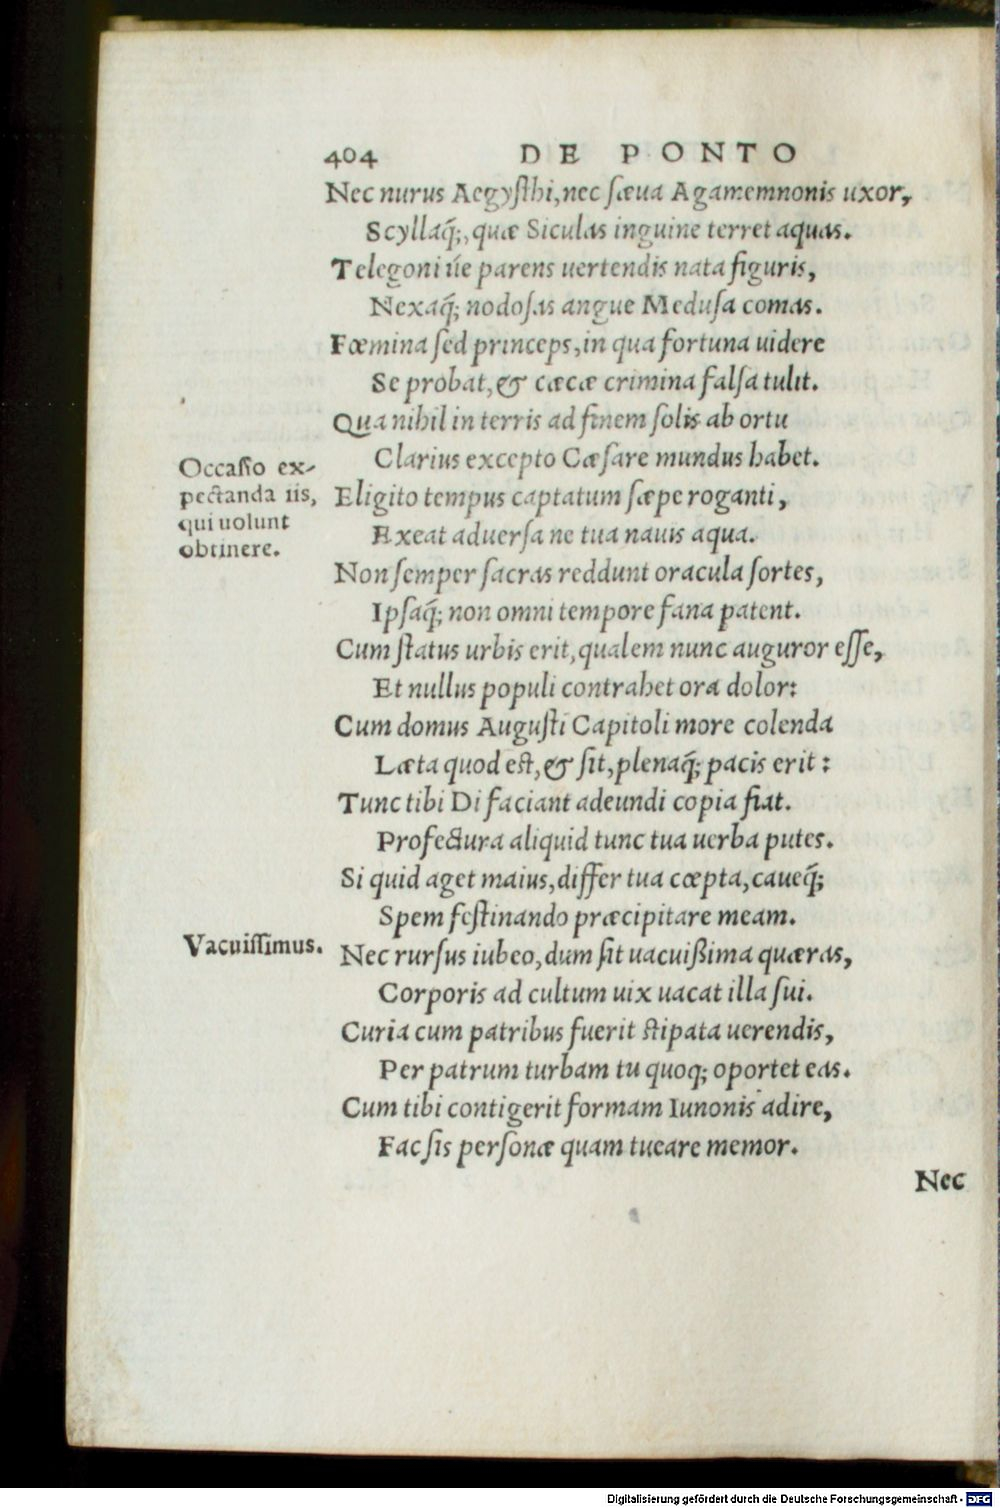 404 DE PONTO
Nec nurus Aegysthi, nec sæua Agamemnonis uxor,
Scyllaq́;, quæ Siculas inguine terret aquas.
Telegoni úe parens uertendis nata figuris,
Nexaq́; nodosas angue Medusa comas.
Fœmina sed princeps, in qua fortuna uidere
Se probat, & cæcæ crimina falsa tulit.
Qua nihil in terris ad finem solis ab ortu
Clarius excepto Cæsare mundus habet.
Occasio ex-
pectanda iis,
qui uolunt
obtinere.
Eligito tempus captatum sæpe roganti,
Exeat aduersa ne tua nauis aqua.
Non semper sacras reddunt oracula sortes,
Ipsaq́; non omni tempore fana patent.
Cum status urbis erit, qualem nunc auguror esse,
Et nullus populi contrahet ora dolor:
Cum domus Augusti Capitoli more colenda
Læta quod est, & sit, plenaq́; pacis erit:
Tunc tibi Di faciant adeundi copia fiat.
Profectura aliquid tunc tua uerba putes.
Si quid aget maius, differ tua cœpta, caueq́;
Spem festinando præcipitare meam.
Vacuissimus.
Nec rursus iubeo, dum sit uacuißima quæras,
Corporis ad cultum uix uacat illa sui.
Curia cum patribus fuerit stipata uerendis,
Per patrum turbam tu quoq; oportet eas.
Cum tibi contigerit formam Iunonis adire,
Fac sis personæ quam tueare memor.
Nec
Digitalisierung gefördert durch die Deutsche Forschungsgemeinschaft - DFG